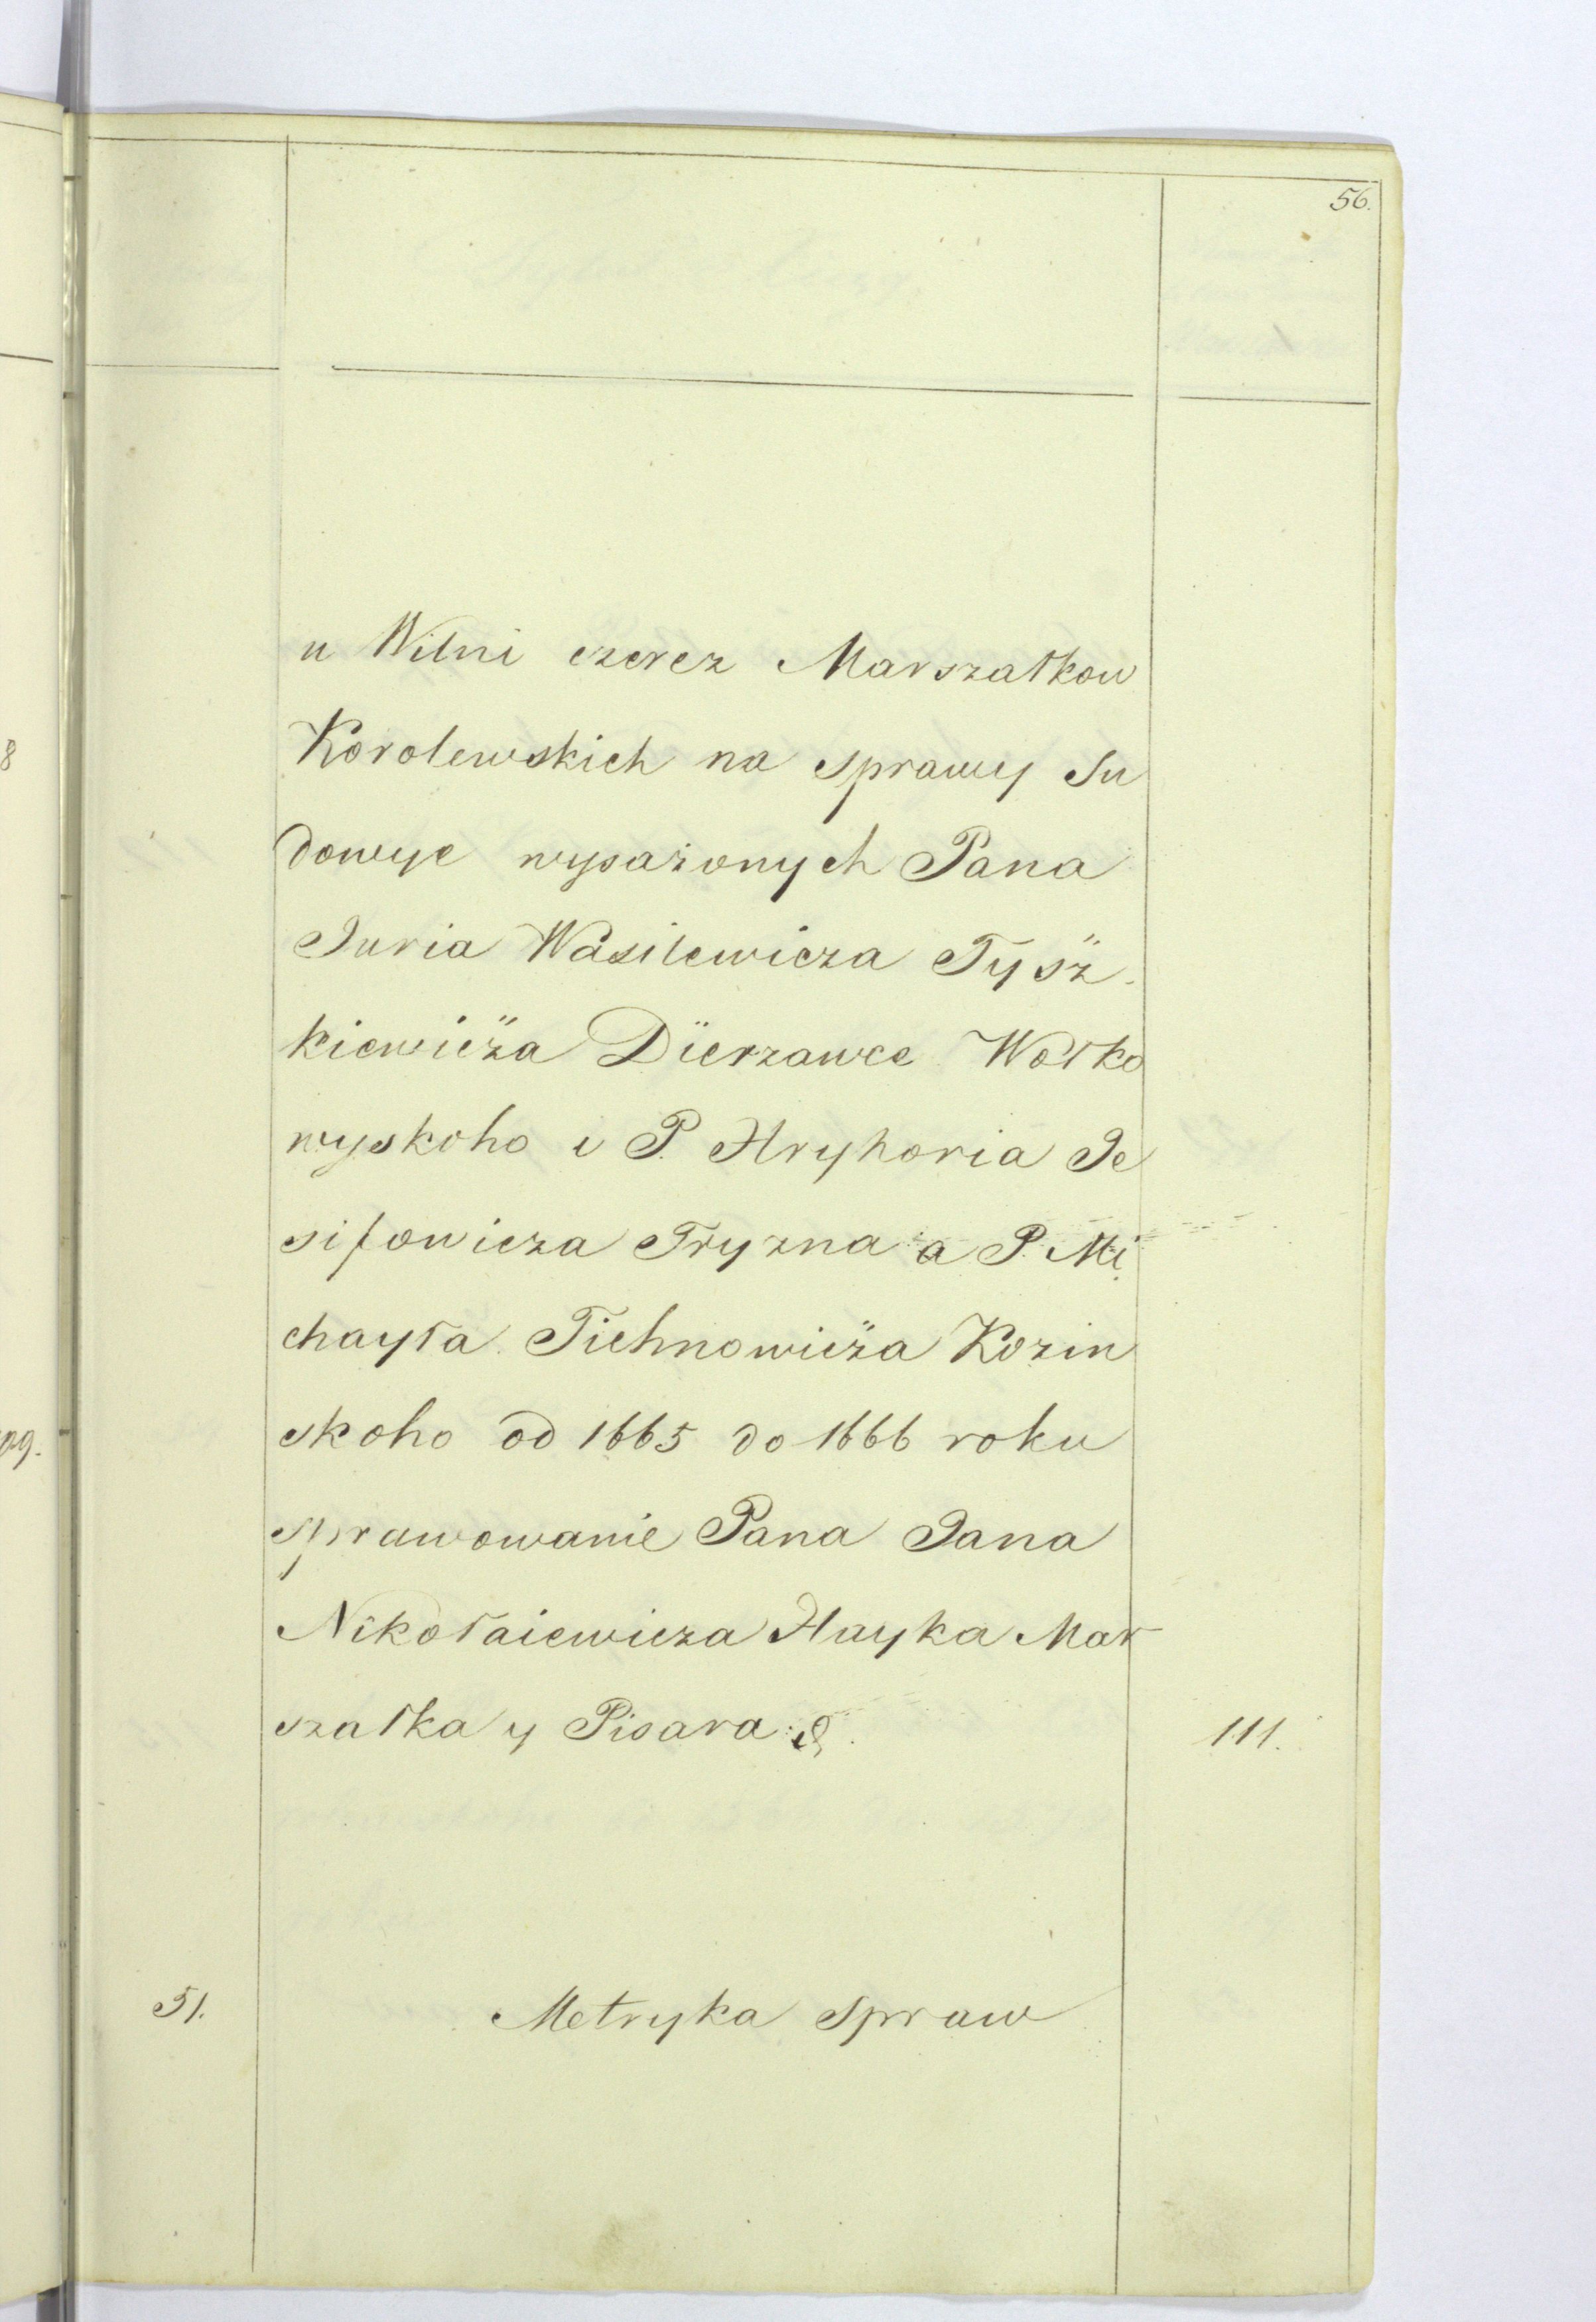 56.
u Wilni czerez Marszałkow
Korolewskich na sprawy Su
dowye wysażonych Pana
Juria Wasilewicza Tysż-
kiewicża Dïerzawce Wołko
wyskoho i P. Hryhoria Je
sifowicza Tryzna a P. Mi
chayła Tichnowicża Kozin
skoho od 1665 do 1666 roku
sprawowanie Pana Jana
Nikołaiewicza Hayka Mar
szałka y Pisara 111.
51. Metryka Spraw